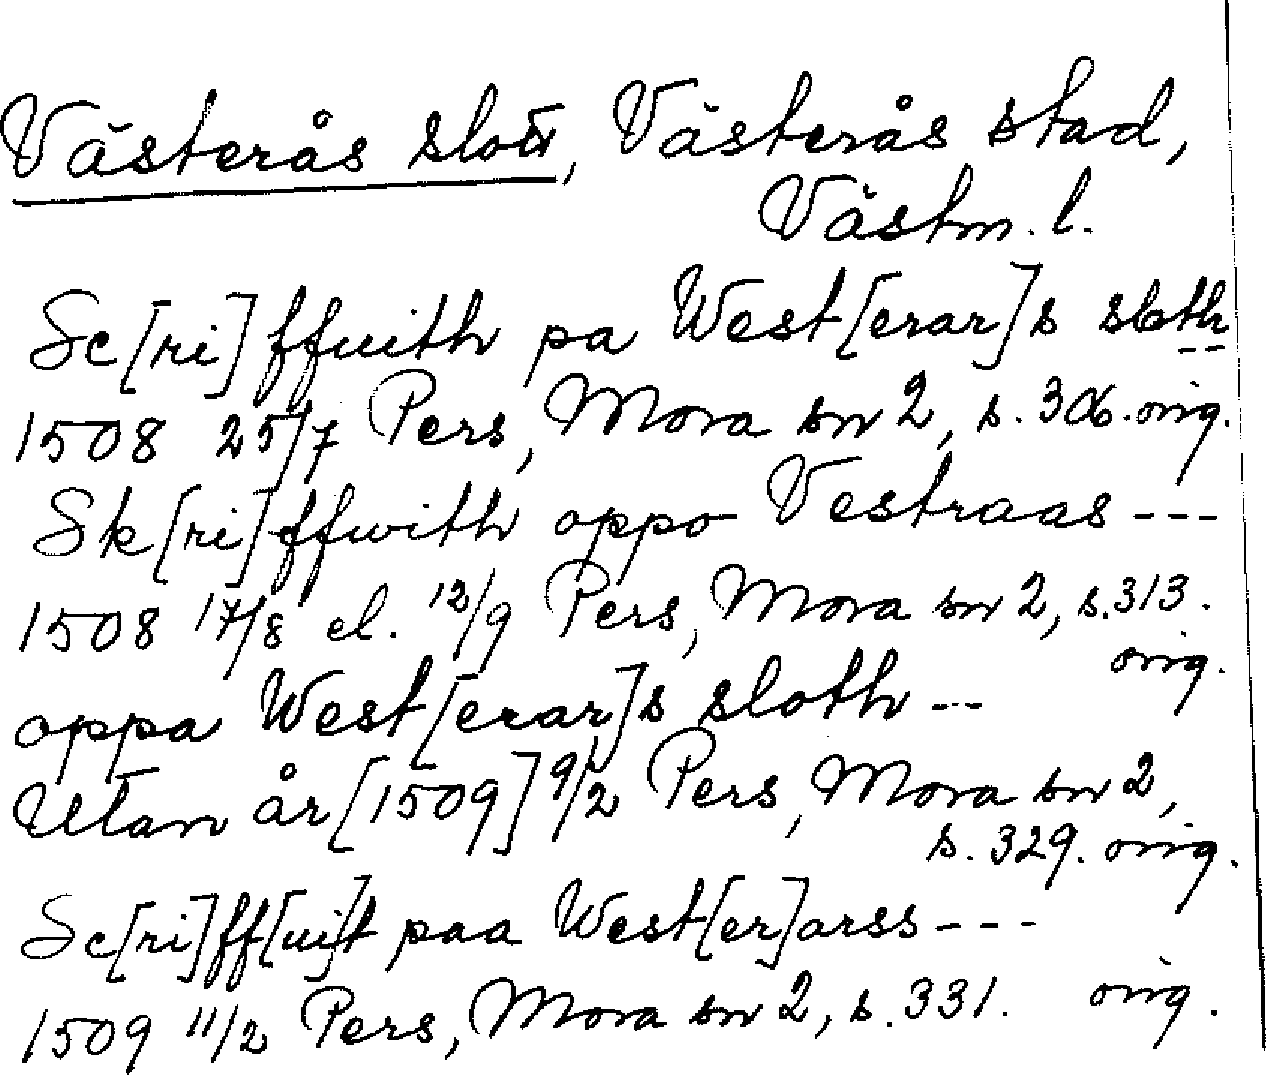 Västerås slott, Västerås stad,
Västm. l.
Sc[ri]ffuith pa West[erar]s sloth
1508 25/7 Pers, Mora sn 2, s. 306. orig.
Sk[ri]ffwith oppo Vestraas ---
1508 17/8 el. 12/9 Pers, Mora sn 2, s. 313.
orig.
oppa West[erar]s sloth ---
Utan år [1509] 9/2 Pers, Mora sn 2,
s. 329. orig.
Sc[ri]ff[ui]t paa West[er]arss ---
1509 11/2 Pers, Mora sn 2, s. 331. orig.